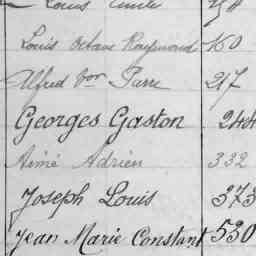 Louis
Louis Octave Raymond 160
Alfred Vor Parre 217
Georges Gaston 244
Aimé Adrien 332
Joseph Louis 373
Jean Marie Constant 530